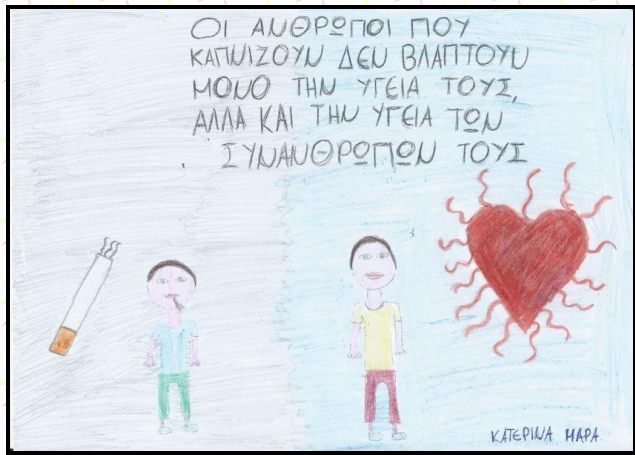 ΟΙ ΑΝΘΡΩΠΟΙ ΠΟΥ
ΚΑΠΝΙΖΟΥΝ ΔΕΝ ΒΛΑΠΤΟΥΝ
ΜΟΝΟ ΤΗΝ ΥΓΕΙΑ ΤΟΥΣ,
ΑΛΛΑ ΚΑΙ ΤΗΝ ΥΓΕΙΑ ΤΩΝ
ΣΥΝΑΝΘΡΩΠΩΝ ΤΟΥΣ
ΚΑΤΕΡΙΝΑ ΜΑΡΑ